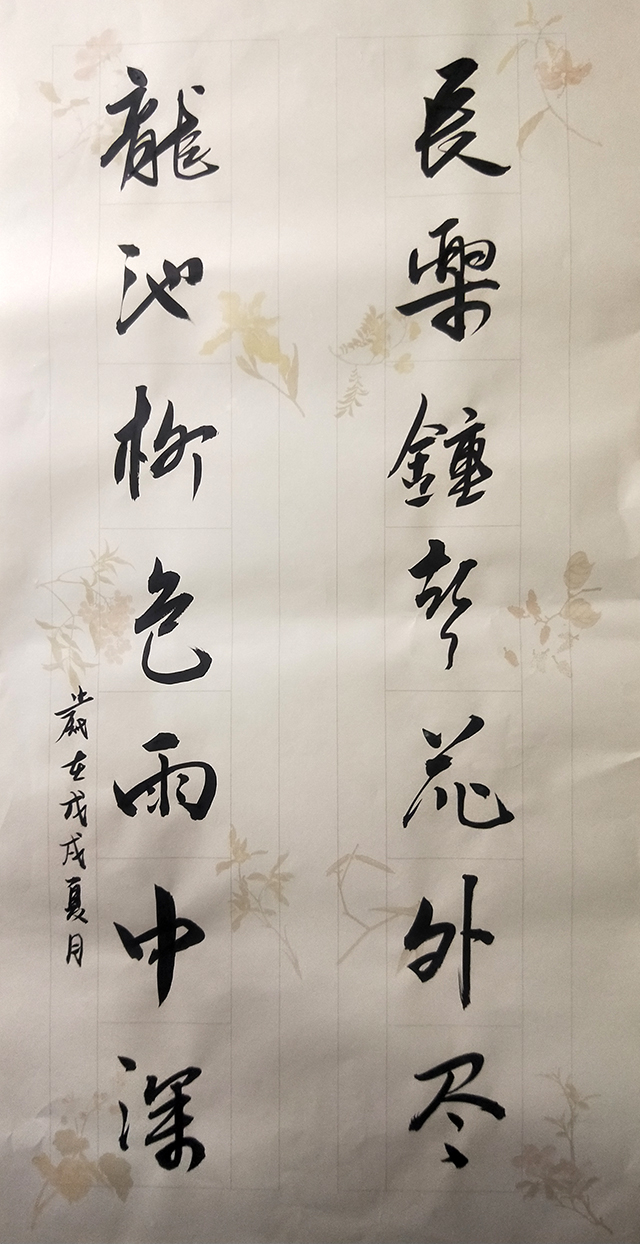 長樂鐘聲花外尽
龍池柳色雨中深
歲在戊戌夏月